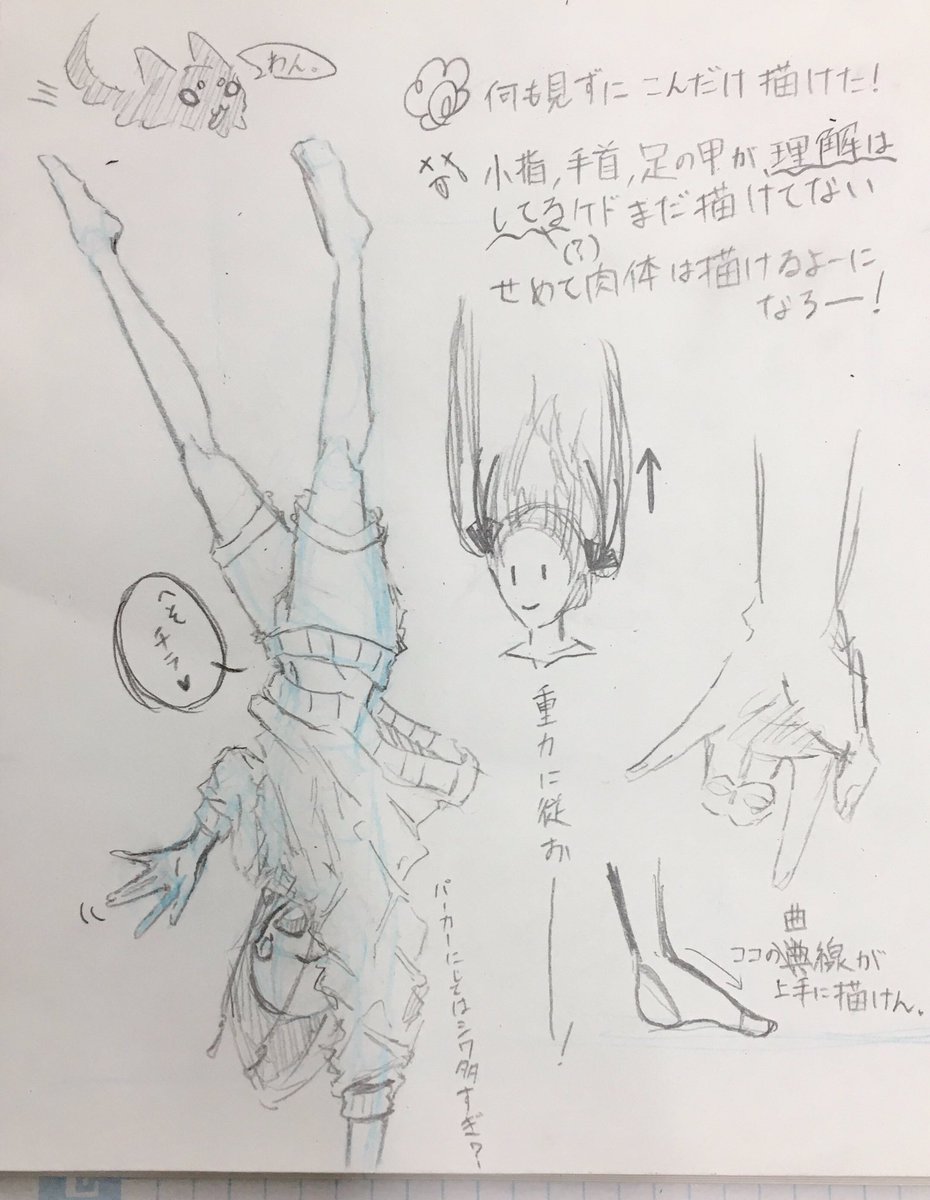 わん。
何も見ずに こんだけ 描けた!
小指,手首,足の甲が,理解は
してるケド まだ描けてない
(?)
せめて肉体は描けるよーに
なろー!
へそ
チラ♥
重力に従おー!
パーカーにしてはシワ多すぎ?
曲
ココの典線が
上手に描けん。